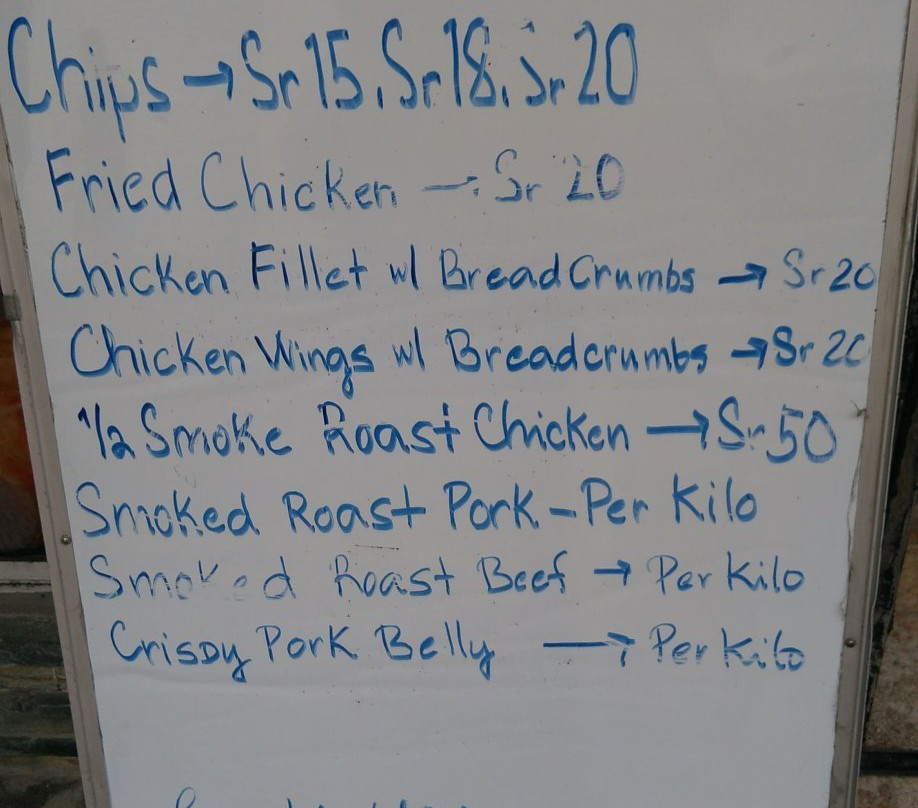 Chips → Sr 15, Sr 18, Sr 20
Fried Chicken → Sr 20
Chicken Fillet w/ BreadCrumbs → Sr 20
Chicken Wings w/ Breadcrumbs → Sr 20
1/2 Smoke Roast Chicken → Sr 50
Smoked Roast Pork - Per Kilo
Smoked Roast Beef → Per Kilo
Crispy Pork Belly → Per Kilo